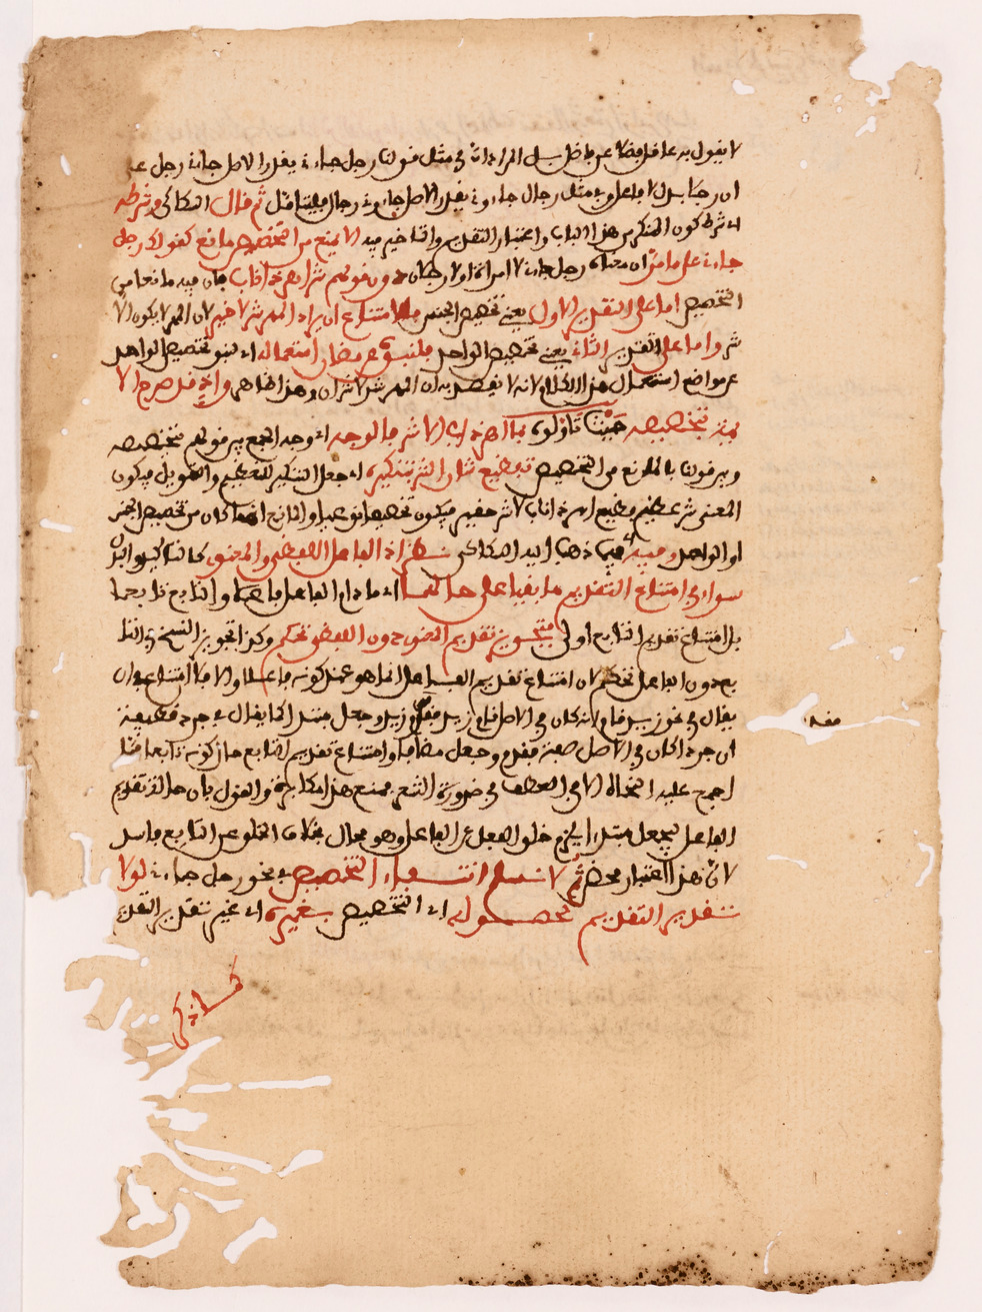 لا يقول به عاقل فضلا عن فاضل بل المراد انه في مثل قولنا رجل جاءني يقدر الاصل جاءني رجل على
ان رجلا بدل لا فاعل وفي مثل رجال جاءوني يقدر الاصل جاءوني رجال فليتامل ثم قال السكاكي وشرطه
اي شرط كون المنكر من هذا الباب واعتبار التقديم والتاخير فيه ان لا يمنع من التخصيص مانع كقولك رجل
جاءني على ما مر ان معناه رجل جاءني لا امراة او لا رجلان دون قولهم شر اهر ذا ناب فان فيه مانعا من
التخصيص اما على التقدير الاول يعني تخصيص الجنس فلامتناع ان يراد المهر شر لا خير لان المهر لا يكون الا
شرا واما على التقدير الثاني يعني تخصيص الواحد فلنبوه عن مظان استعماله اي لنبو تخصيص الواحد
عن مواضع استعمال هذا الكلام لانه لا يقصد به ان المهر شر لا شران وهذا ظاهر واذ قد صرح الا
ئمة بتخصيصه حيث تاولوه بما اهر ذا ناب الا شر فالوجه اي وجه الجمع بين قولهم بتخصيصه
وبين قولنا بالمانع من التخصيص تفظيع شان الشر بتنكيره اي جعل التنكير للتعظيم والتهويل فيكون
المعنى شر عظيم فظيع اهر ذا ناب لا شر حقير فيكون تخصيصا نوعيا والمانع انما كان من تخصيص الجنس
او الواحد وفيه اي فيما ذهب اليه السكاكي نظر اذ الفاعل اللفظي والمعنوي كالتاكيد والبدل
سواء في امتناع التقديم ما بقيا على حالهما اي ما دام الفاعل فاعلا والتابع تابعا
بل امتناع تقديم التابع اولى فتجويز تقديم المعنوي دون اللفظي تحكم وكذا تجويز الفسخ في التا
بع دون الفاعل تحكم لان امتناع تقديم الفاعل انما هو عند كونه فاعلا والا فلا امتناع في ان
يقال في نحو زيد قام انه كان في الاصل قام زيد فقدم زيد وجعل مبتدا كما يقال في جرد قطيفة
ان جردا كان في الاصل صفة فقدم وجعل مضافا وامتناع تقديم التابع حال كونه تابعا مما
اجمع عليه النحاة الا في العطف في ضرورة الشعر فمنع هذا مكابرة والقول بان حالة تقديم
الفاعل ليجعل مبتدا يلزم خلو الفعل عن الفاعل وهو محال بخلاف الخلو عن التابع فاسد
لان هذا اعتبار محض ثم لا نسلم انتفاء التخصيص في نحو رجل جاءني لولا
تقدير التقديم لحصوله اي التخصيص بغيره اي غير تقدير التقديم
كما ذكر